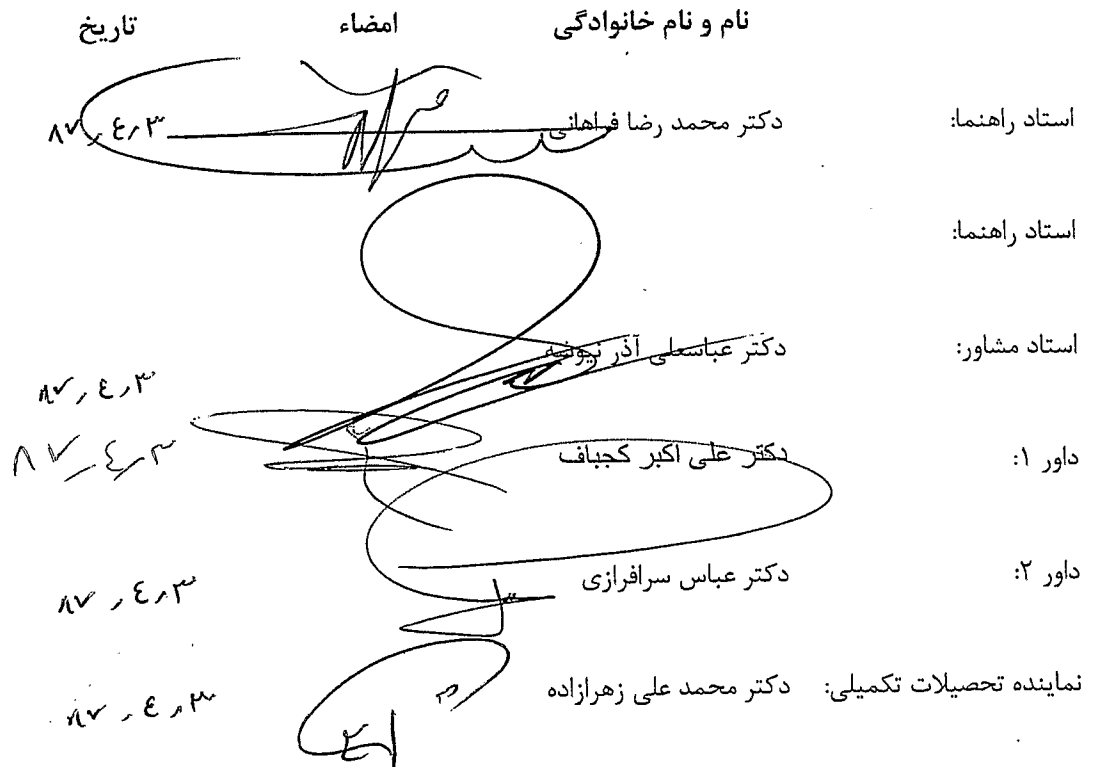 نام و نام خانوادگی امضاء تاریخ
استاد راهنما: دکتر محمد رضا فراهانی ۸۷،٤،۳
استاد راهنما:
استاد مشاور: دکتر عباسعلی آذر نیوشه ۸۷،٤،۳
داور ۱: دکتر علی اکبر کجباف ۸۷،٤،۳
داور ۲: دکتر عباس سرافرازی ۸۷،٤،۳
نماینده تحصیلات تکمیلی: دکتر محمد علی زهرازاده ۸۷،٤،۳